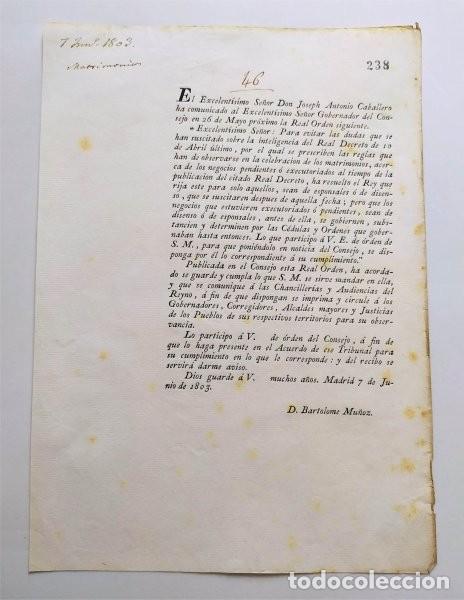 7 Jun.º 1803.
Matrimonios
238
46
El Excelentísimo Señor Don Joseph Antonio Caballero
ha comunicado al Excelentísimo Señor Gobernador del Con-
sejo en 26 de Mayo próximo la Real Orden siguiente.
"Excelentísimo Señor: Para evitar las dudas que se
han suscitado sobre la inteligencia del Real Decreto de 10
de Abril último, por el qual se prescriben las reglas que
han de observarse en la celebracion de los matrimonios, acer-
ca de los negocios pendientes ó executoriados al tiempo de la
publicacion del citado Real Decreto, ha resuelto el Rey que
rija este para solo aquellos, sean de esponsales ó de disen-
so, que se suscitaren despues de aquella fecha; pero que los
negocios que estuvieren executoriados ó pendientes, sean de
disenso ó de esponsales, antes de ella, se gobiernen, subs-
tancien y determinen por las Cédulas y Ordenes que gober-
naban hasta entonces. Lo que participo á V. E. de órden de
S. M., para que poniéndolo en noticia del Consejo, se dis-
ponga por él lo correspondiente á su cumplimiento."
Publicada en el Consejo esta Real Orden, ha acorda-
do se guarde y cumpla lo que S. M. se sirve mandar en ella,
y que se comunique á las Chancillerías y Audiencias del
Reyno, á fin de que dispongan se imprima y circule á los
Gobernadores, Corregidores, Alcaldes mayores y Justicias
de los Pueblos de sus respectivos territorios para su obser-
vancia.
Lo participo á V. de órden del Consejo, á fin de
que lo haga presente en el Acuerdo de ese Tribunal para
su cumplimiento en lo que le corresponde: y del recibo se
servirá darme aviso.
Dios guarde á V. muchos años. Madrid 7 de Ju-
nio de 1803.
D. Bartolome Muñoz.
todocoleccion